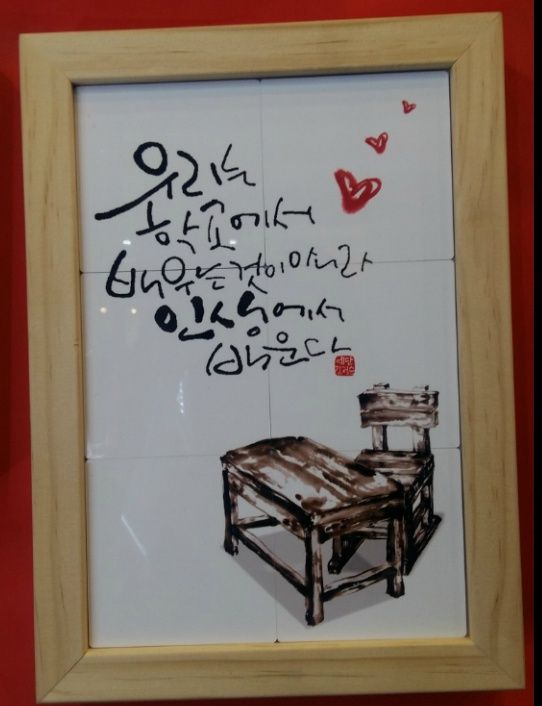 우리는
학교에서
배우는것이아니라
인생에서
배운다